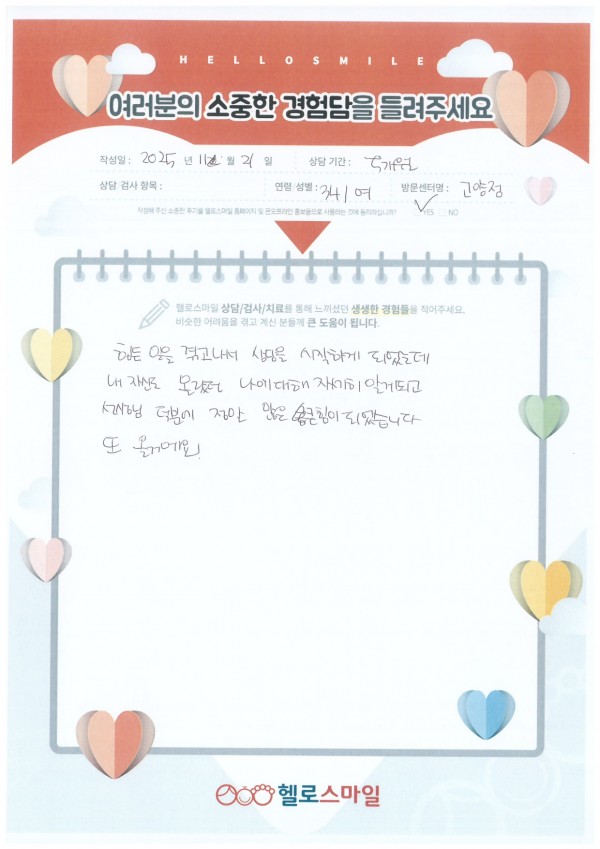 HELLOSMILE
여러분의 소중한 경험담을 들려주세요
작성일 : 2025 년 11 월 21 일 상담 기간 : 개월
상담 검사 항목 : 연령 성별 : 34 / 여 방문센터명 : 고양점
작성해 주신 소중한 후기를 헬로스마일 홈페이지 및 온오프라인 홍보용으로 사용하는 것에 동의하십니까? YES NO
헬로스마일 상담/검사/치료를 통해 느끼셨던 생생한 경험들을 적어주세요.
비슷한 어려움을 겪고 계신 분들께 큰 도움이 됩니다.
힘든 일을 겪고나서 상담을 시작하게 되었는데
내 자신도 몰랐던 나에대해 자세히 알게되고
선생님 덕분에 정말 많은 큰힘이 되었습니다
또 올거에요!
헬로스마일